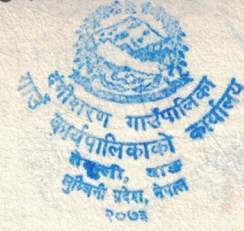 बंगेसाल गाउँपालिका
गाउँ कार्यपालिकाको कार्यालय
प्यूठान
लुम्बिनी प्रदेश, नेपाल
२०७३